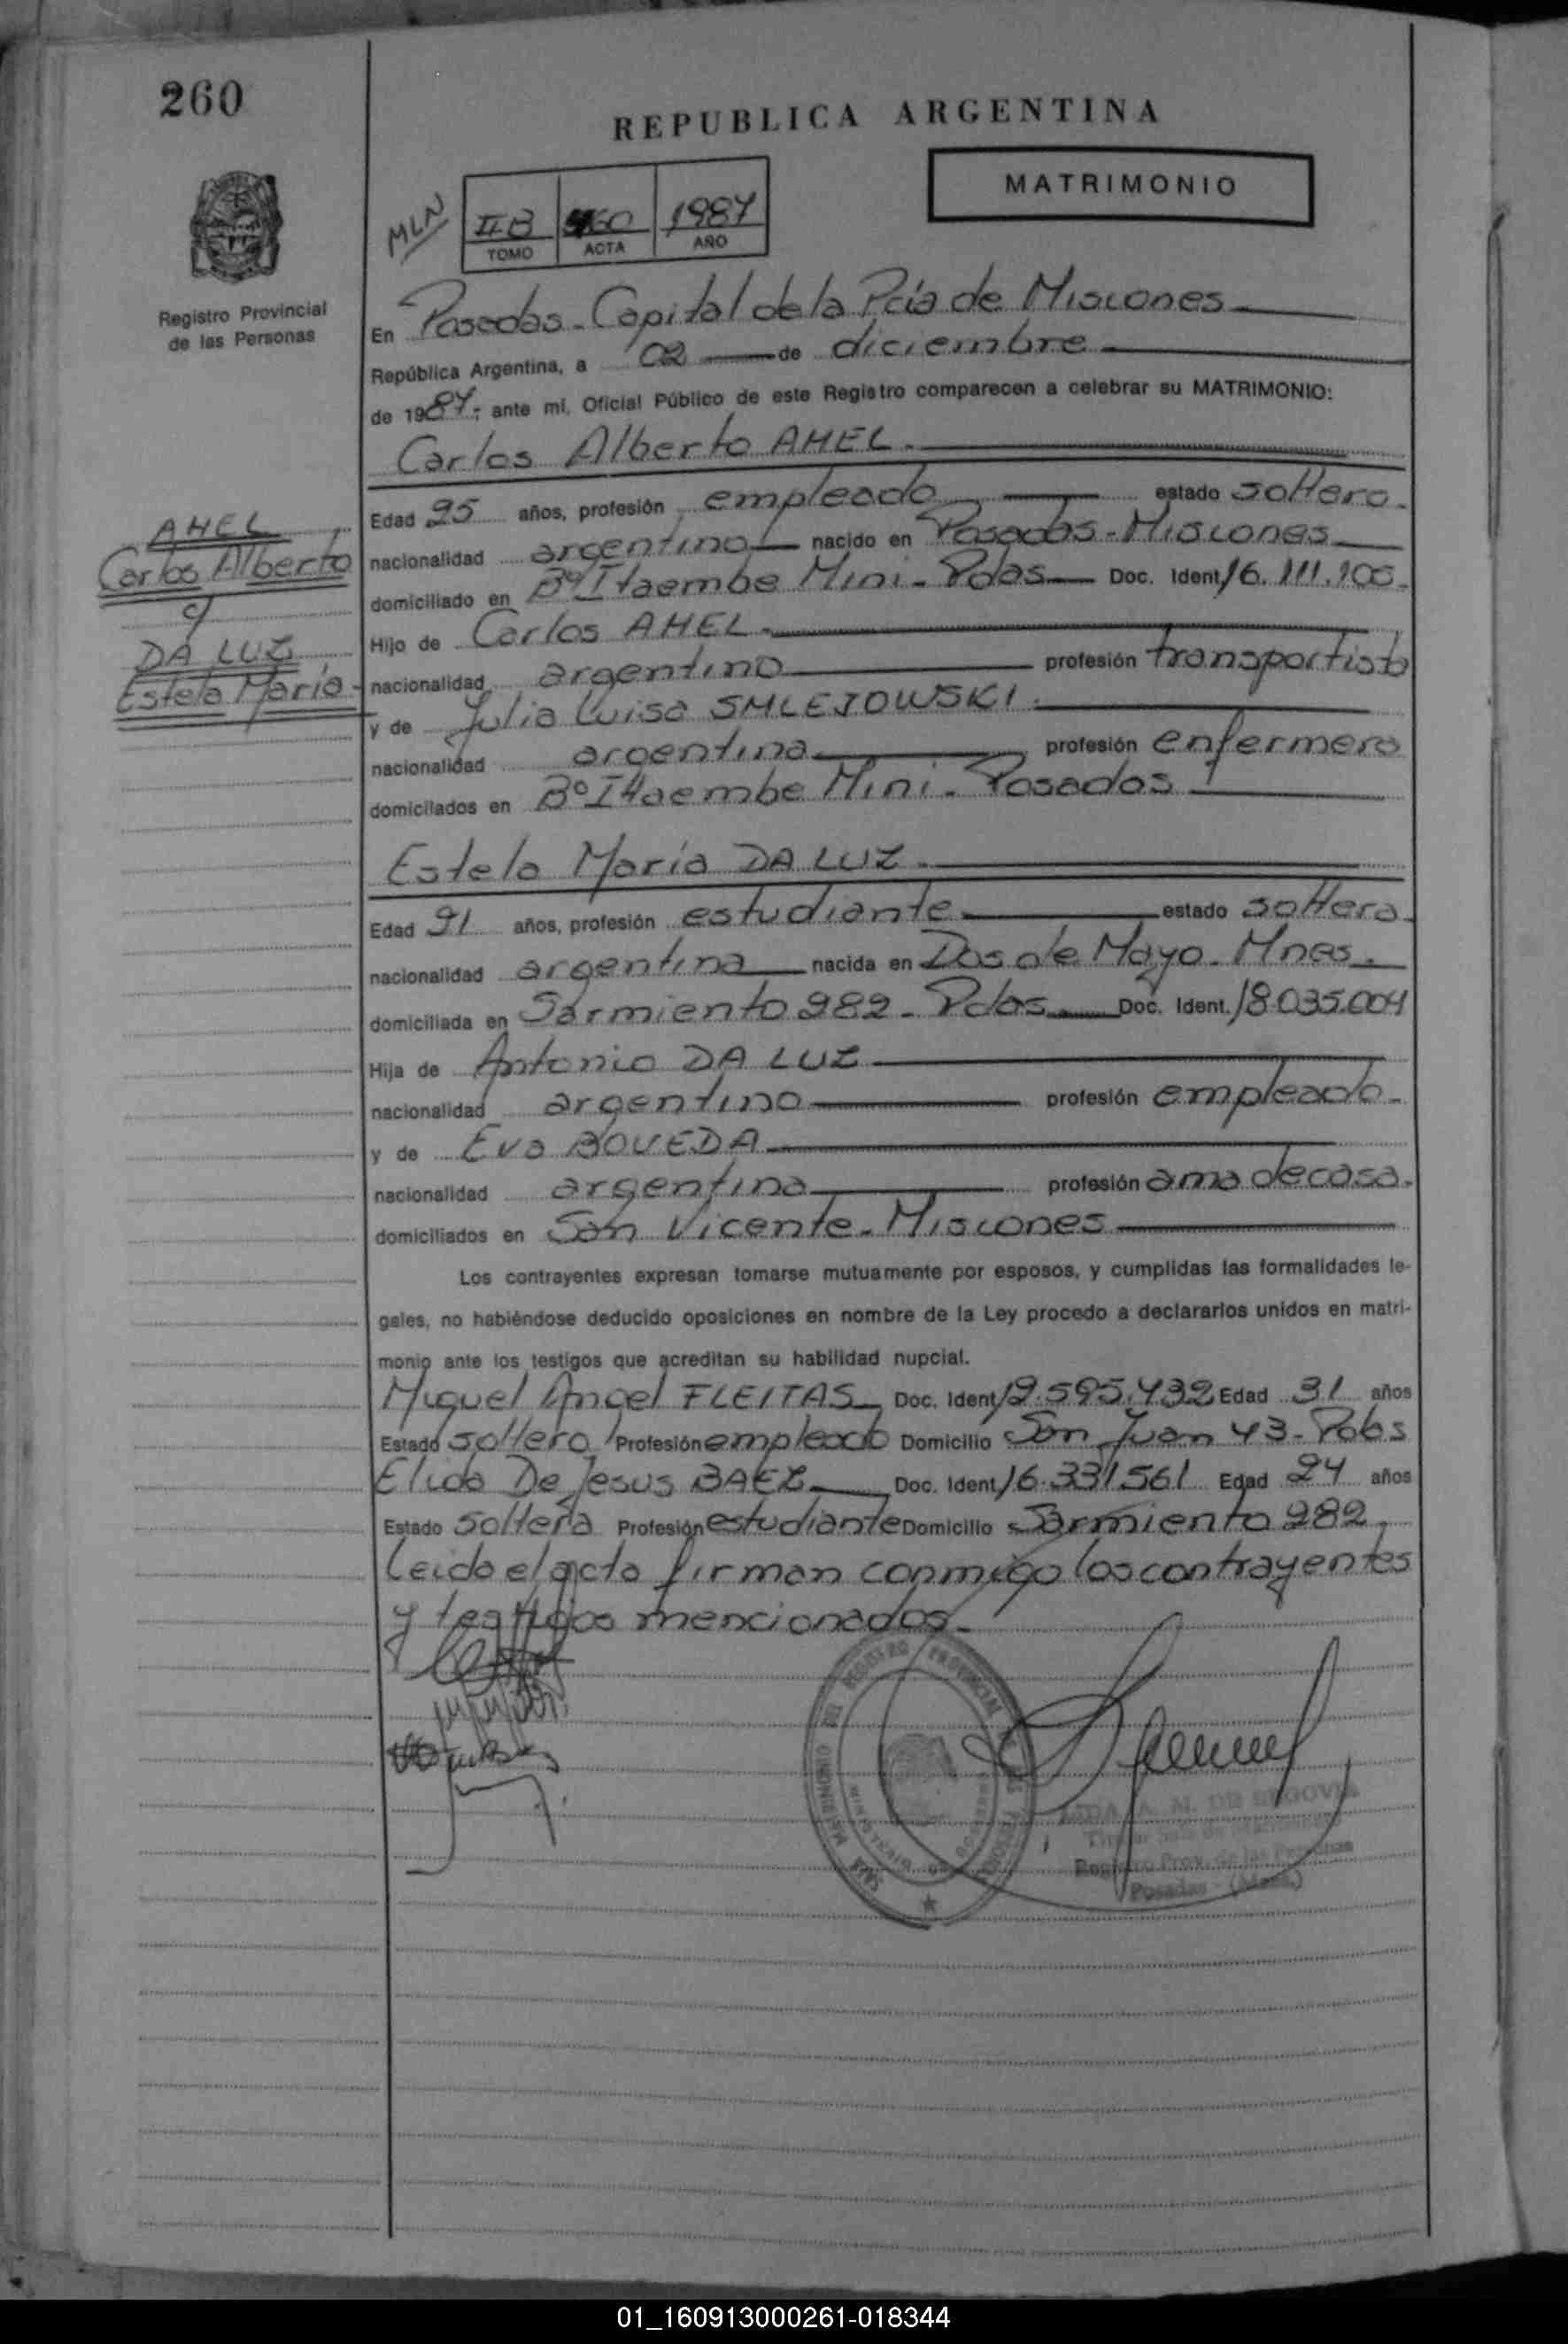 260
REPUBLICA ARGENTINA
MATRIMONIO
MLN
II B 960 1987
TOMO ACTA AÑO
Registro Provincial
de las Personas
En Posadas - Capital de la Pcia de Misiones
República Argentina, a 02 de diciembre
de 1987.- ante mí, Oficial Público de este Registro comparecen a celebrar su MATRIMONIO:
Carlos Alberto AHEL.
Edad 25 años, profesión empleado estado soltero.
nacionalidad argentino nacido en Posadas - Misiones
domiciliado en Bº Itaembe Mini - Pdas Doc. Ident. 16.111.100.
Hijo de Carlos AHEL.
nacionalidad argentino profesión transportista
y de Julia Luisa SMLEJOWSKI
nacionalidad argentina profesión enfermera
domicilados en Bº Itaembe Mini - Posadas
AHEL
Carlos Alberto
c/
DA LUZ,
Estela María.
Estela María DA LUZ.
Edad 21 años, profesión estudiante estado soltera.
nacionalidad argentina nacida en Dos de Mayo - Mnes.
domiciliada en Sarmiento 282 - Pdas. Doc. Ident. 18.035.004
Hija de Antonio DA LUZ
nacionalidad argentino profesión empleado.
y de Eva BOVEDA
nacionalidad argentina profesión ama de casa.
domiciliados en San Vicente - Misiones
Los contrayentes expresan tomarse mutuamente por esposos, y cumplidas las formalidades le-
gales, no habiéndose deducido oposiciones en nombre de la Ley procedo a declararlos unidos en matri-
monio ante los testigos que acreditan su habilidad nupcial.
Miguel Angel FLEITAS Doc. Ident. 12.595.432 Edad 31 años
Estado soltero Profesión empleado Domicilio San Juan 43 - Pdas
Elida De Jesus BAEZ Doc. Ident. 16.331.561 Edad 24 años
Estado soltera Profesión estudiante Domicilio Sarmiento 282
Leida el acta firman conmigo los contrayentes
y testigos mencionados.
A. M. DE SEGOVIA
Registro Prov. de las Personas
Posadas - (Mnes.)
01_160913000261-018344